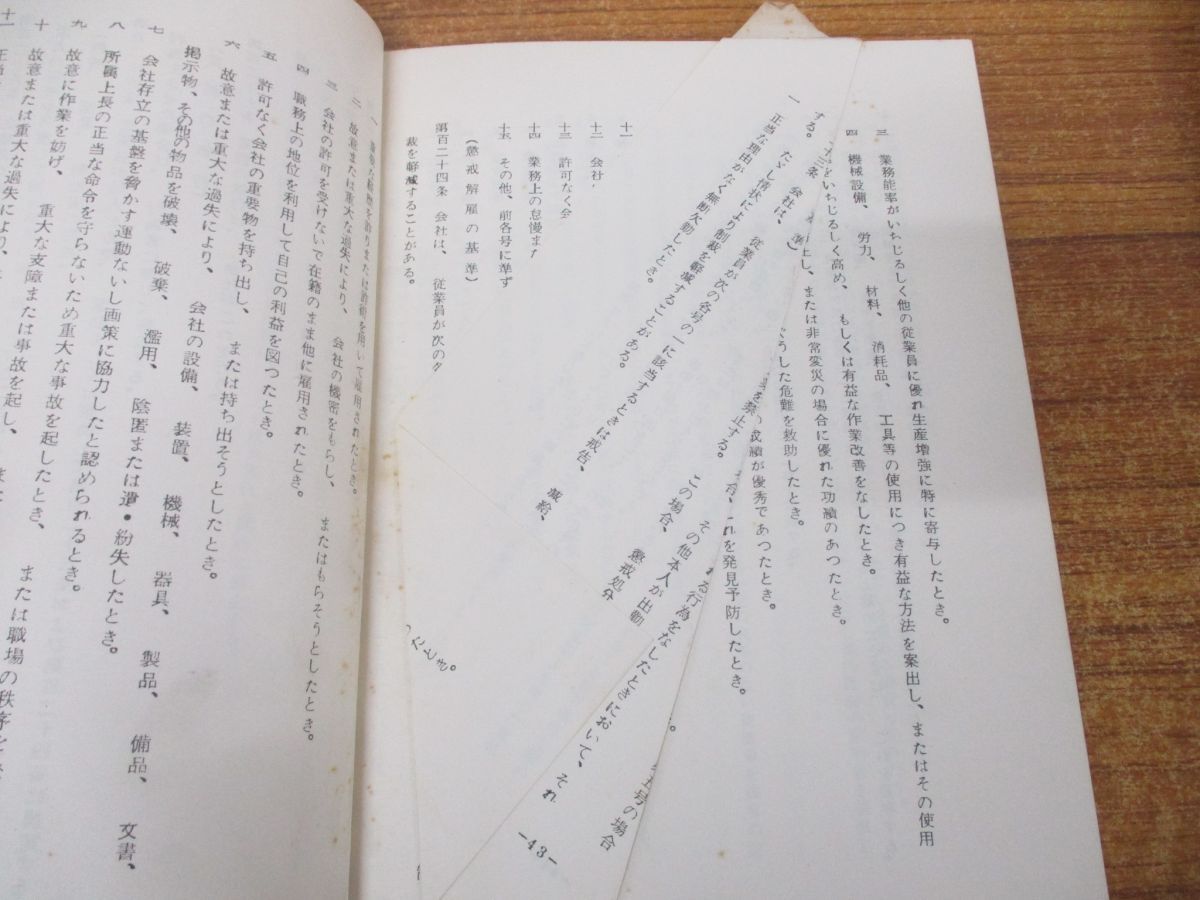 三 業務能率がいちじるしく他の従業員に優れ生産増強に特に寄与したとき。
四 機械設備、労力、材料、消耗品、工具等の使用につき有益な方法を案出し、またはその使用
をいちじるしく高め、もしくは有益な作業改善をなしたとき。
し、または非常変災の場合に優れた功績のあつたとき。
うした危難を救助したとき。
績が優秀であつたとき。
れを発見予防したとき。
る行為をなしたときにおいて、それ
を禁止する。この場合、
その他本人が出勤
五号の場合
する。たゞし情状により制裁を軽減することがある。
会社は、従業員が次の各号の一に該当するときは戒告、減給、懲戒処分
一 正当な理由がなく無断欠勤したとき。
-43-
十一
十二 会社
十三 許可なく会
十四 業務上の怠慢また
十五 その他、前各号に準ず
(懲戒解雇の基準)
第百二十四条 会社は、従業員が次の
裁を軽減することがある。
つたとき。
を詐りまたは詐術を用いて雇用されたとき。
二 故意または重大な過失により、会社の機密をもらし、またはもらそうとしたとき。
三 会社の許可を受けないで在籍のまま他に雇用されたとき。
四 職務上の地位を利用して自己の利益を図つたとき。
五 許可なく会社の重要物を持ち出し、または持ち出そうとしたとき。
六 故意または重大な過失により、会社の設備、装置、機械、器具、製品、備品、文書、
掲示物、その他の物品を破壊、破棄、濫用、陰匿または遺・紛失したとき。
七 会社存立の基盤を脅かす運動ないし画策に協力したと認められるとき。
八 所属上長の正当な命令を守らないため重大な事故を起したとき、または職場の秩序を
九 故意に作業を妨げ、重大な支障または事故を起したとき。
十 故意または重大な過失により、
十一 正当